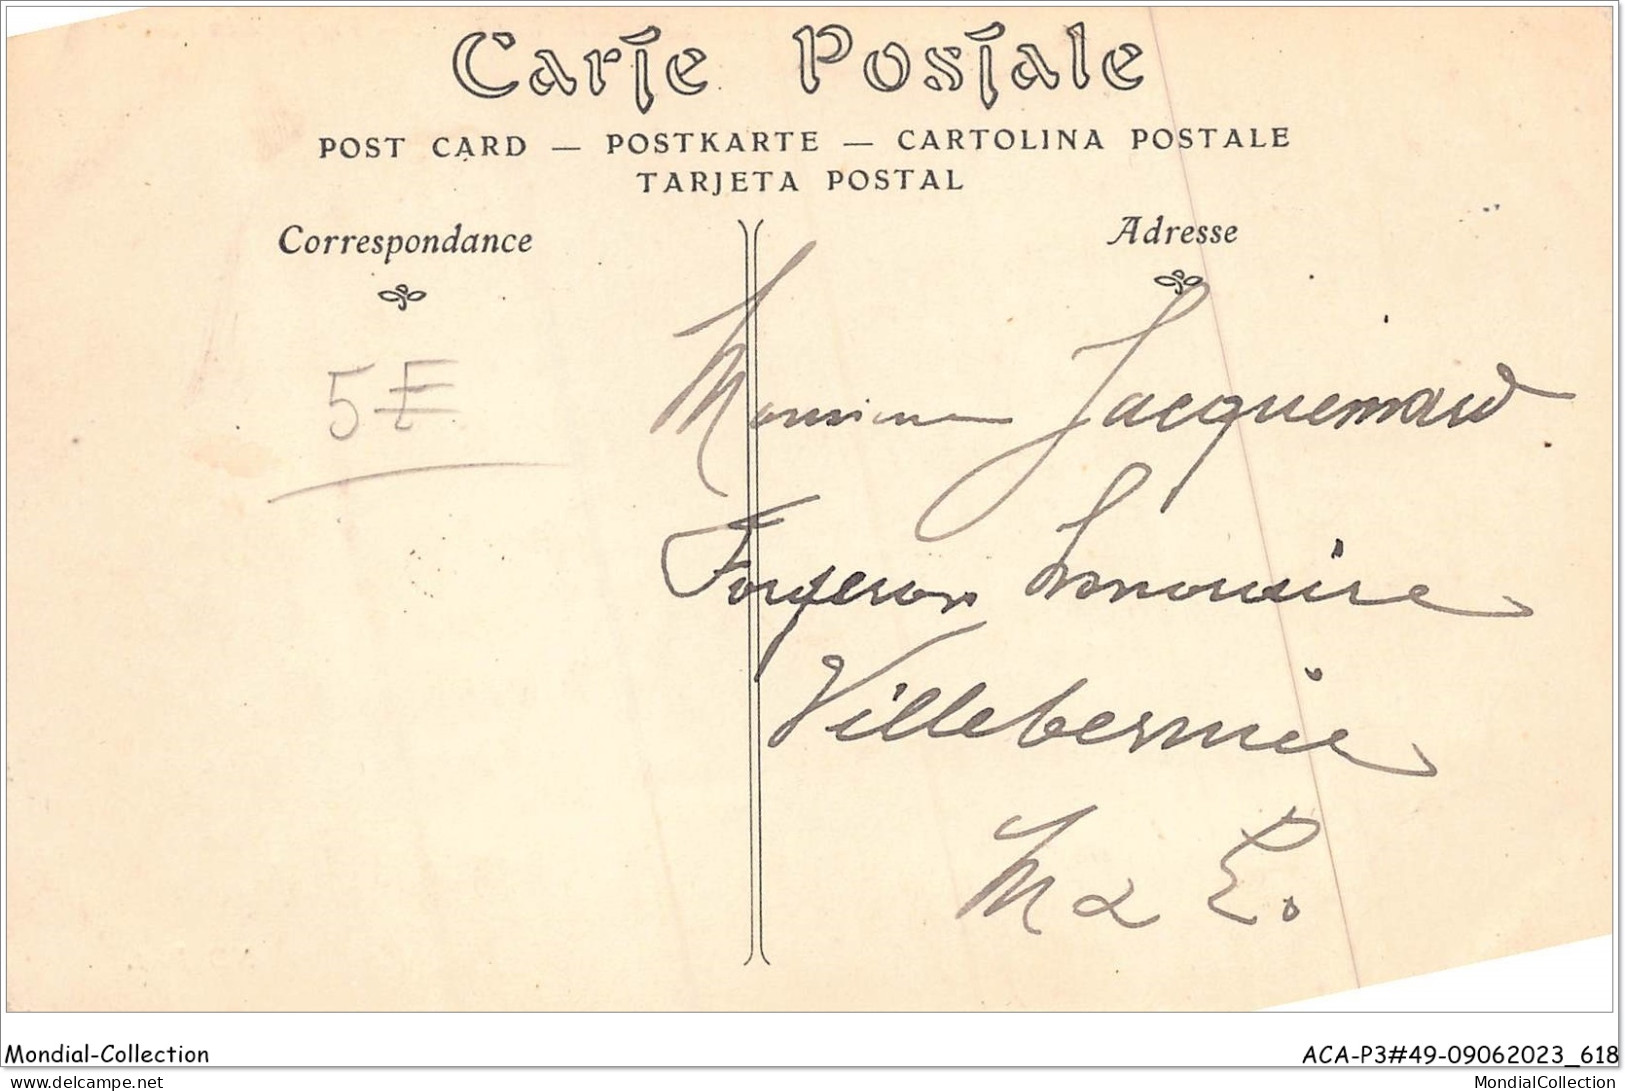 Carte Postale
POST CARD — POSTKARTE — CARTOLINA POSTALE
TARJETA POSTAL
Correspondance
Adresse
5 F
Monsieur Jacquemard
Forgeron
Villebernier
M & L.
Mondial-Collection
ACA-P3#49-09062023_618
www.delcampe.net
MondialCollection